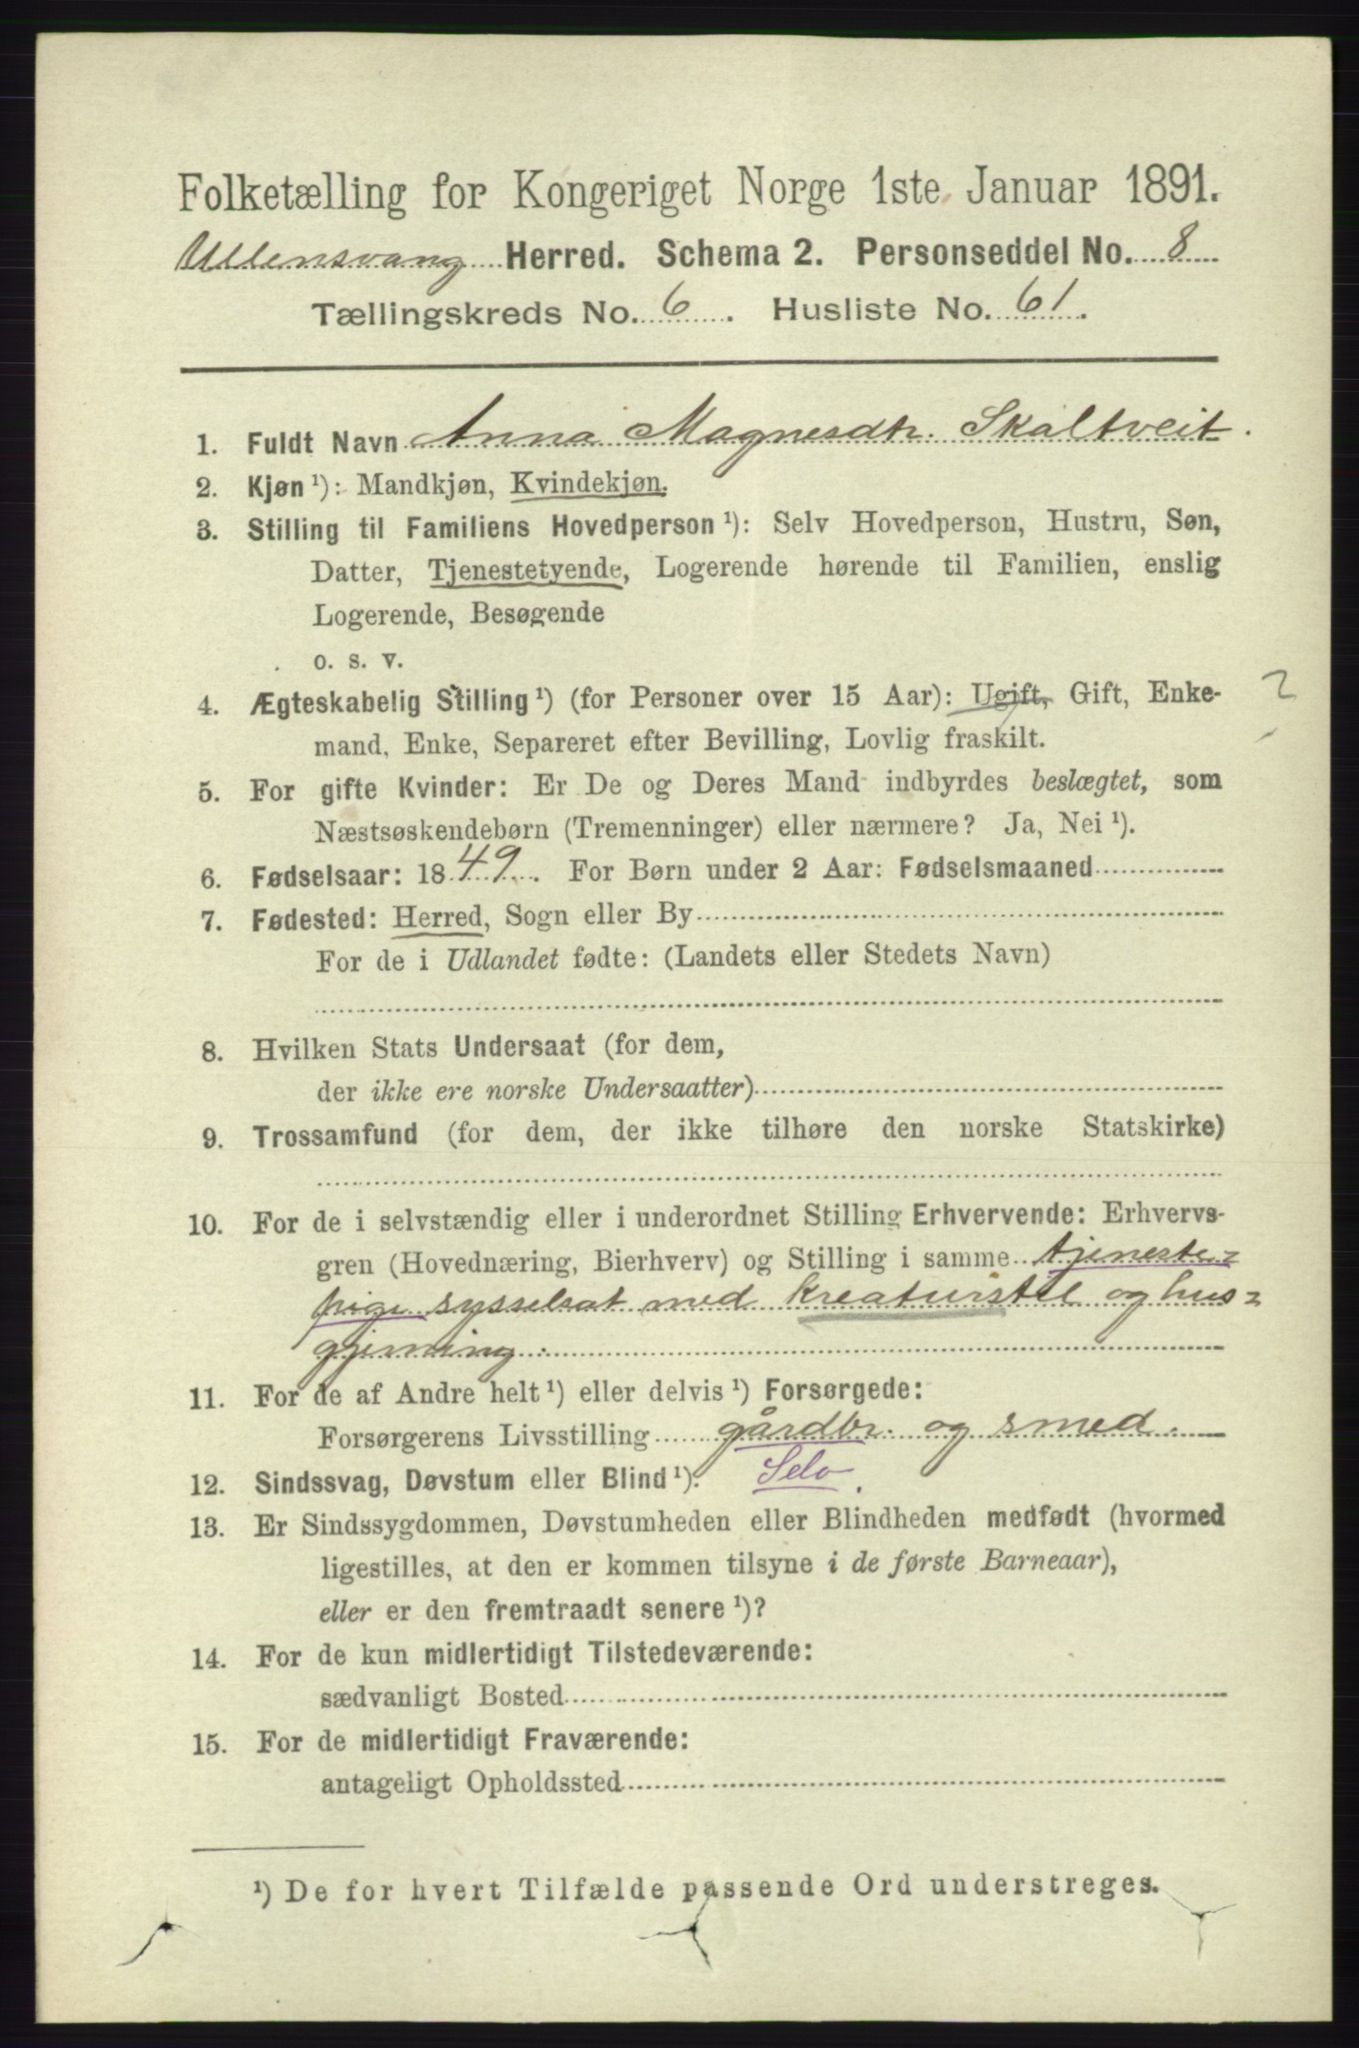 Folketælling for Kongeriget Norge 1ste Januar 1891.
Ullensvang Herred. Schema 2. Personseddel No. 8
Tællingskreds No. 6. Husliste No. 61.
1. Fuldt Navn Anna Magnesdtr. Skaltveit.
2. Kjøn ¹): Mandkjøn, Kvindekjøn.
3. Stilling til Familiens Hovedperson ¹): Selv Hovedperson, Hustru, Søn,
Datter, Tjenestetyende, Logerende hørende til Familien, enslig
Logerende, Besøgende
o. s. v.
4. Ægteskabelig Stilling ¹) (for Personer over 15 Aar): Ugift, Gift, Enke-
mand, Enke, Separeret efter Bevilling, Lovlig fraskilt.
2
5. For gifte Kvinder: Er De og Deres Mand indbyrdes beslægtet, som
Næstsøskendebørn (Tremenninger) eller nærmere? Ja, Nei ¹).
6. Fødselsaar: 1849. For Børn under 2 Aar: Fødselsmaaned
7. Fødested: Herred, Sogn eller By
For de i Udlandet fødte: (Landets eller Stedets Navn)
8. Hvilken Stats Undersaat (for dem,
der ikke ere norske Undersaatter)
9. Trossamfund (for dem, der ikke tilhøre den norske Statskirke)
10. For de i selvstændig eller i underordnet Stilling Erhvervende: Erhvervs-
gren (Hovednæring, Bierhverv) og Stilling i samme tjeneste-
pige sysselsat med kreaturstel og hus-
gjerning.
11. For de af Andre helt ¹) eller delvis ¹) Forsørgede:
Forsørgerens Livsstilling gårdbr. og smed.
12. Sindssvag, Døvstum eller Blind ¹). Selv.
13. Er Sindssygdommen, Døvstumheden eller Blindheden medfødt (hvormed
ligestilles, at den er kommen tilsyne i de første Barneaar),
eller er den fremtraadt senere ¹)?
14. For de kun midlertidigt Tilstedeværende:
sædvanligt Bosted
15. For de midlertidigt Fraværende:
antageligt Opholdssted
¹) De for hvert Tilfælde passende Ord understreges.